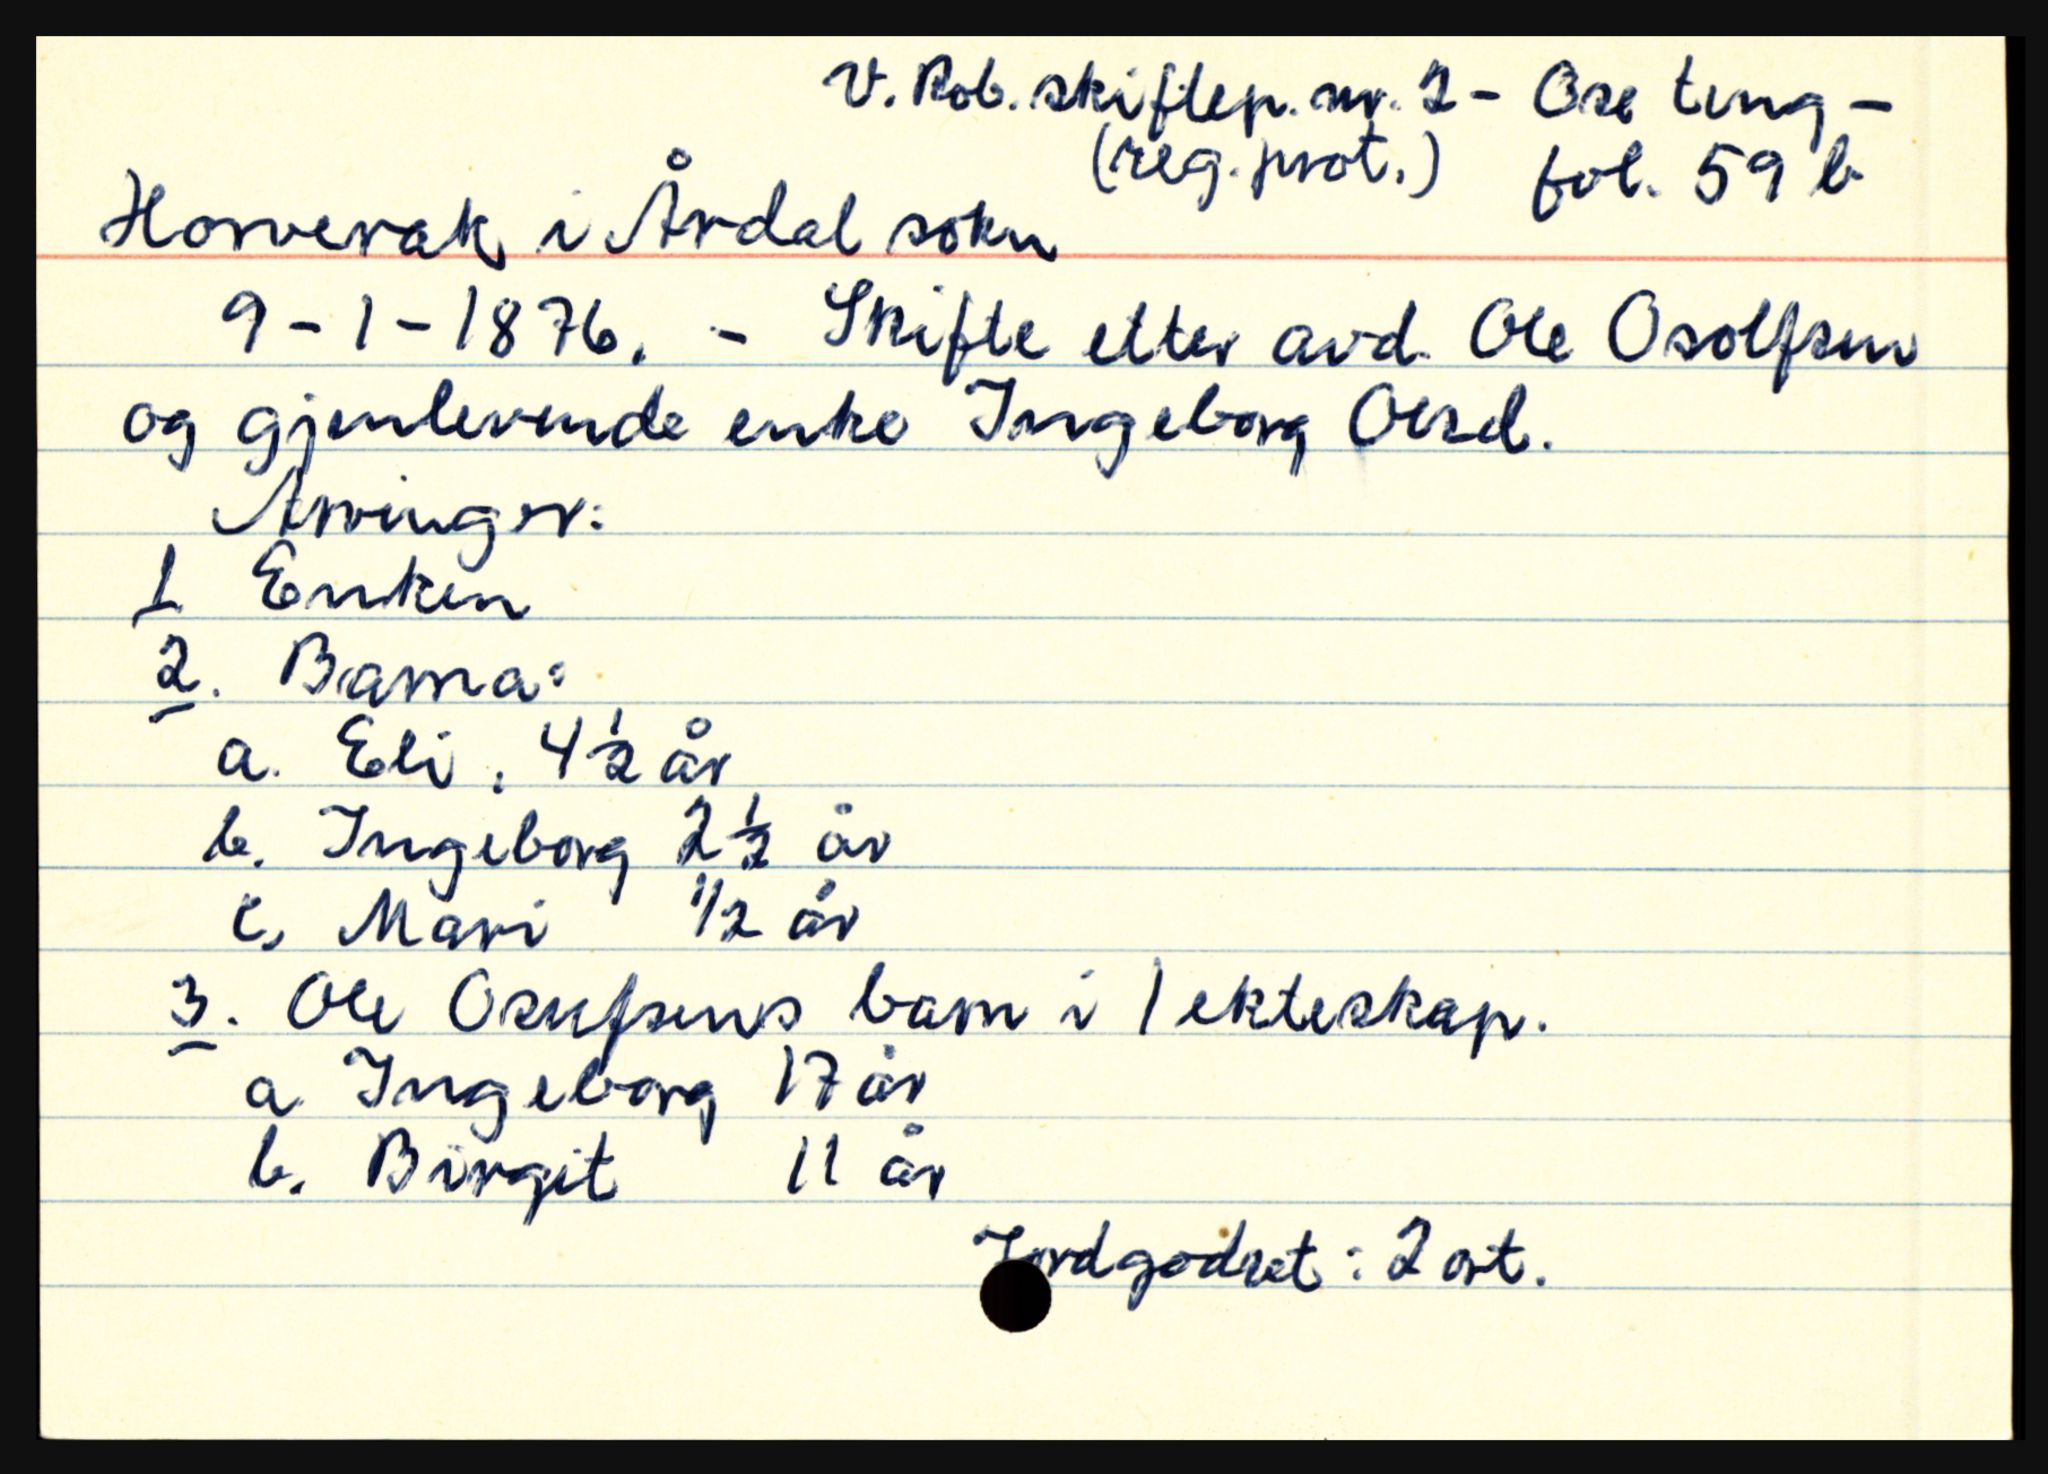 V. Rob. skiftep. nr. 2 - Ose ting -
(reg. prot.) fol. 59 b
Horverak i Årdal sokn
9 - 1 - 1876. - Skifte etter avd. Ole Osolfsen
og gjenlevende enke Ingeborg Olsd.
Arvinger:
1 Enken
2. Barna:
a. Eli, 4 1/2 år
b. Ingeborg 2 1/2 år
c. Mari 1/2 år
3. Ole Osufsens barn i 1 ekteskap.
a Ingeborg 17 år
b. Birgit 11 år
Jordgodset: 2 ort.